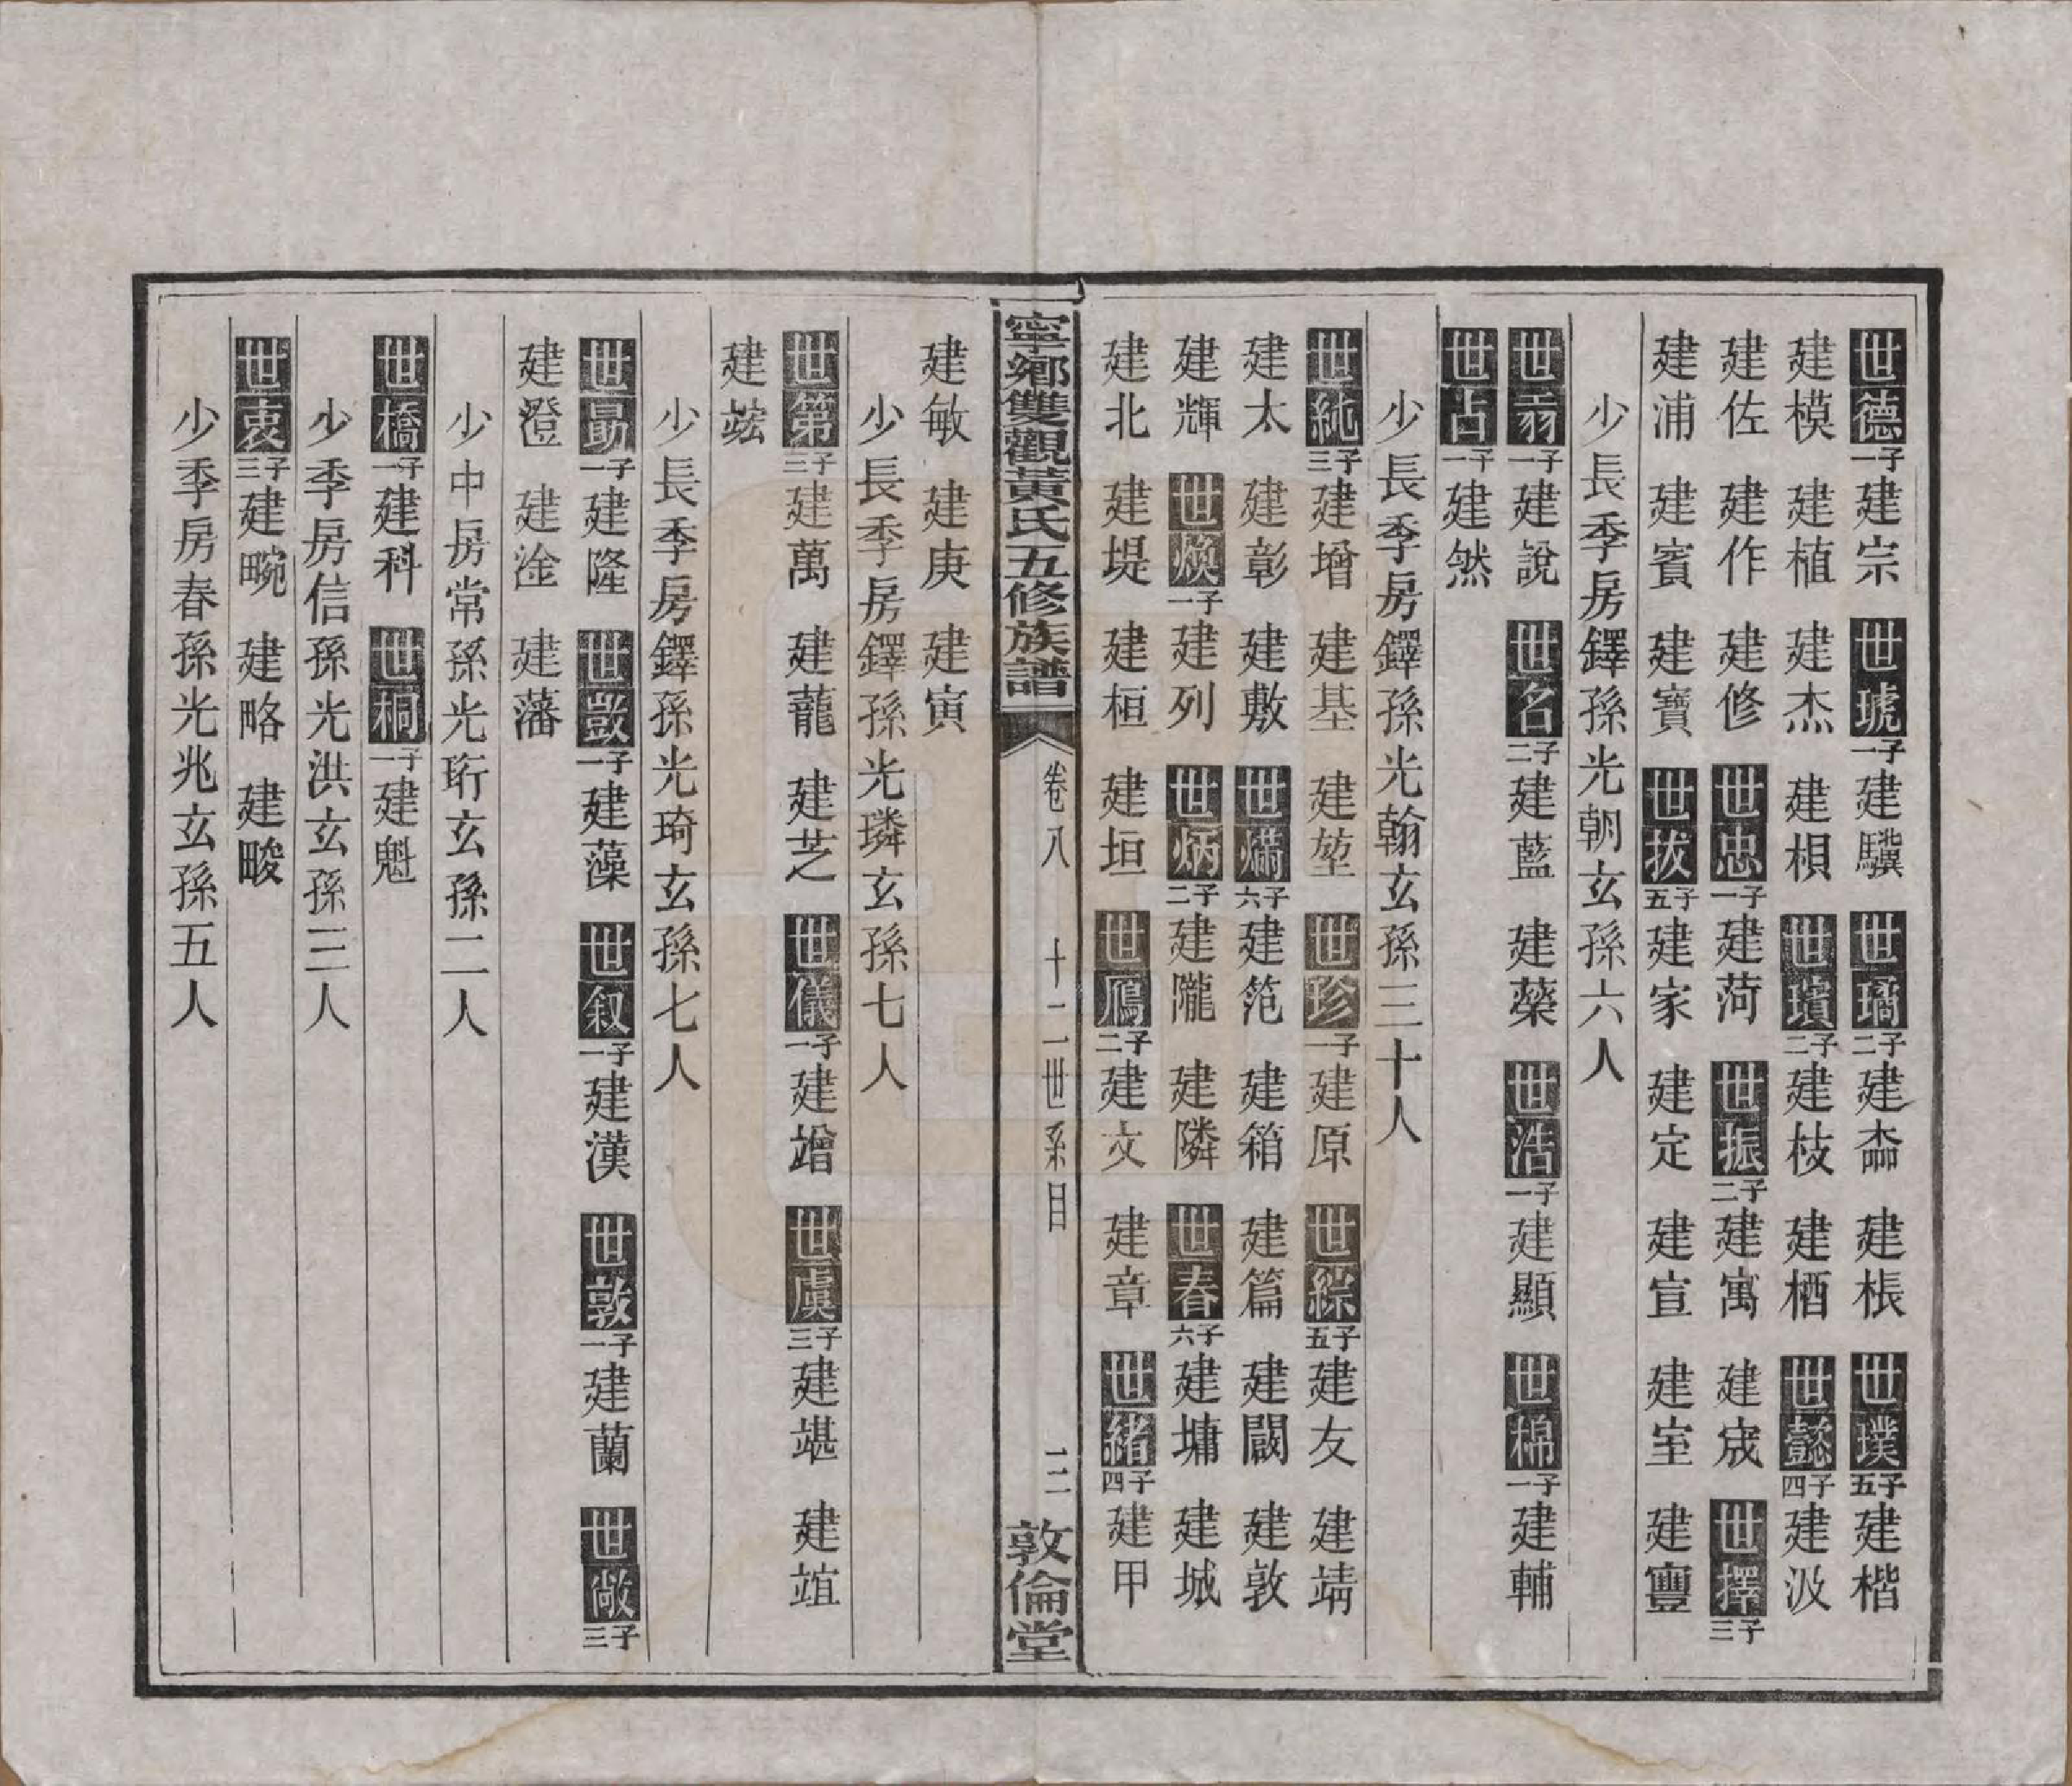 世德一子建宗　世琥一子建驥　世璚二子建㮯　建棖　世璞五子建楷
建模　建植　建杰　建梖　世璸二子建枝　建栖　世懿四子建汲
建佐　建作　建修　世忠一子建菏　世振二子建寓　建宬　世擇三子
建浦　建賓　建寶　世拔五子建家　建定　建宣　建室　建寷
少長季房鐸孫光朝玄孫六人
世翦一子建說　世名二子建藍　建蘂　世浩一子建顯　世棉一子建輔
世占一子建然
少長季房鐸孫光翰玄孫三十人
世純三子建增　建基　建堃　世珍一子建原　世綜五子建友　建靖
建太　建彰　建敷　世㷸六子建笵　建箱　建篇　建闞　建敦
建輝　世煥一子建列　世炳二子建隴　建隣　世春六子建墉　建城
建北　建堤　建桓　建垣　世鴈二子建文　建章　世緒四子建甲
寧鄉雙觀黃氏五修族譜　卷八　十二世系目　三　敦倫堂
建敏　建庚　建寅
少長季房鐸孫光璘玄孫七人
世第三子建萬　建蘢　建芝　世儀一子建竲　世虞三子建堪　建竩
建竑
少長季房鐸孫光琦玄孫七人
世勗一子建隆　世敳一子建藻　世叙一子建漢　世敦一子建蘭　世敞三子
建澄　建淦　建藩
少中房常孫光珩玄孫二人
世橋一子建科　世桐一子建魁
少季房信孫光洪玄孫三人
世衷三子建畹　建略　建畯
少季房春孫光兆玄孫五人